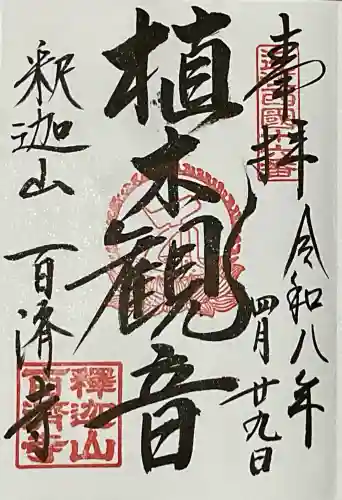 奉拝
令和八年
四月廿九日
植木観音
釈迦山 百済寺
釋迦山百濟寺